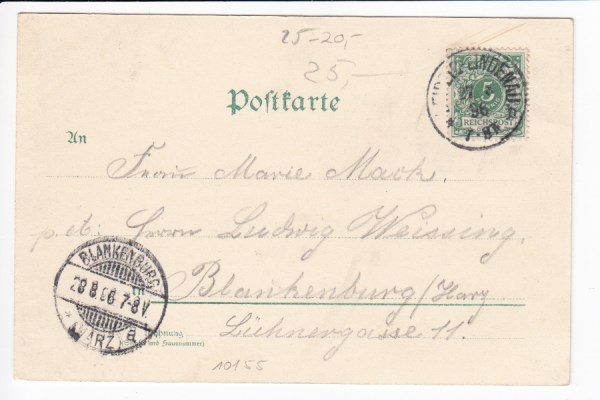 25-20,-
25,-
Postkarte
LINDENAU
96
REICHSPOST
An
Frau Marie Mack.
p. ad. Herrn Ludwig Weissing.
BLANKENBURG
28 8 96 7-8V.
(HARZ) a
in
Blankenburg/Harz
Wohnung
(Straße und Hausnummer)
Lühnergasse 11.
10155